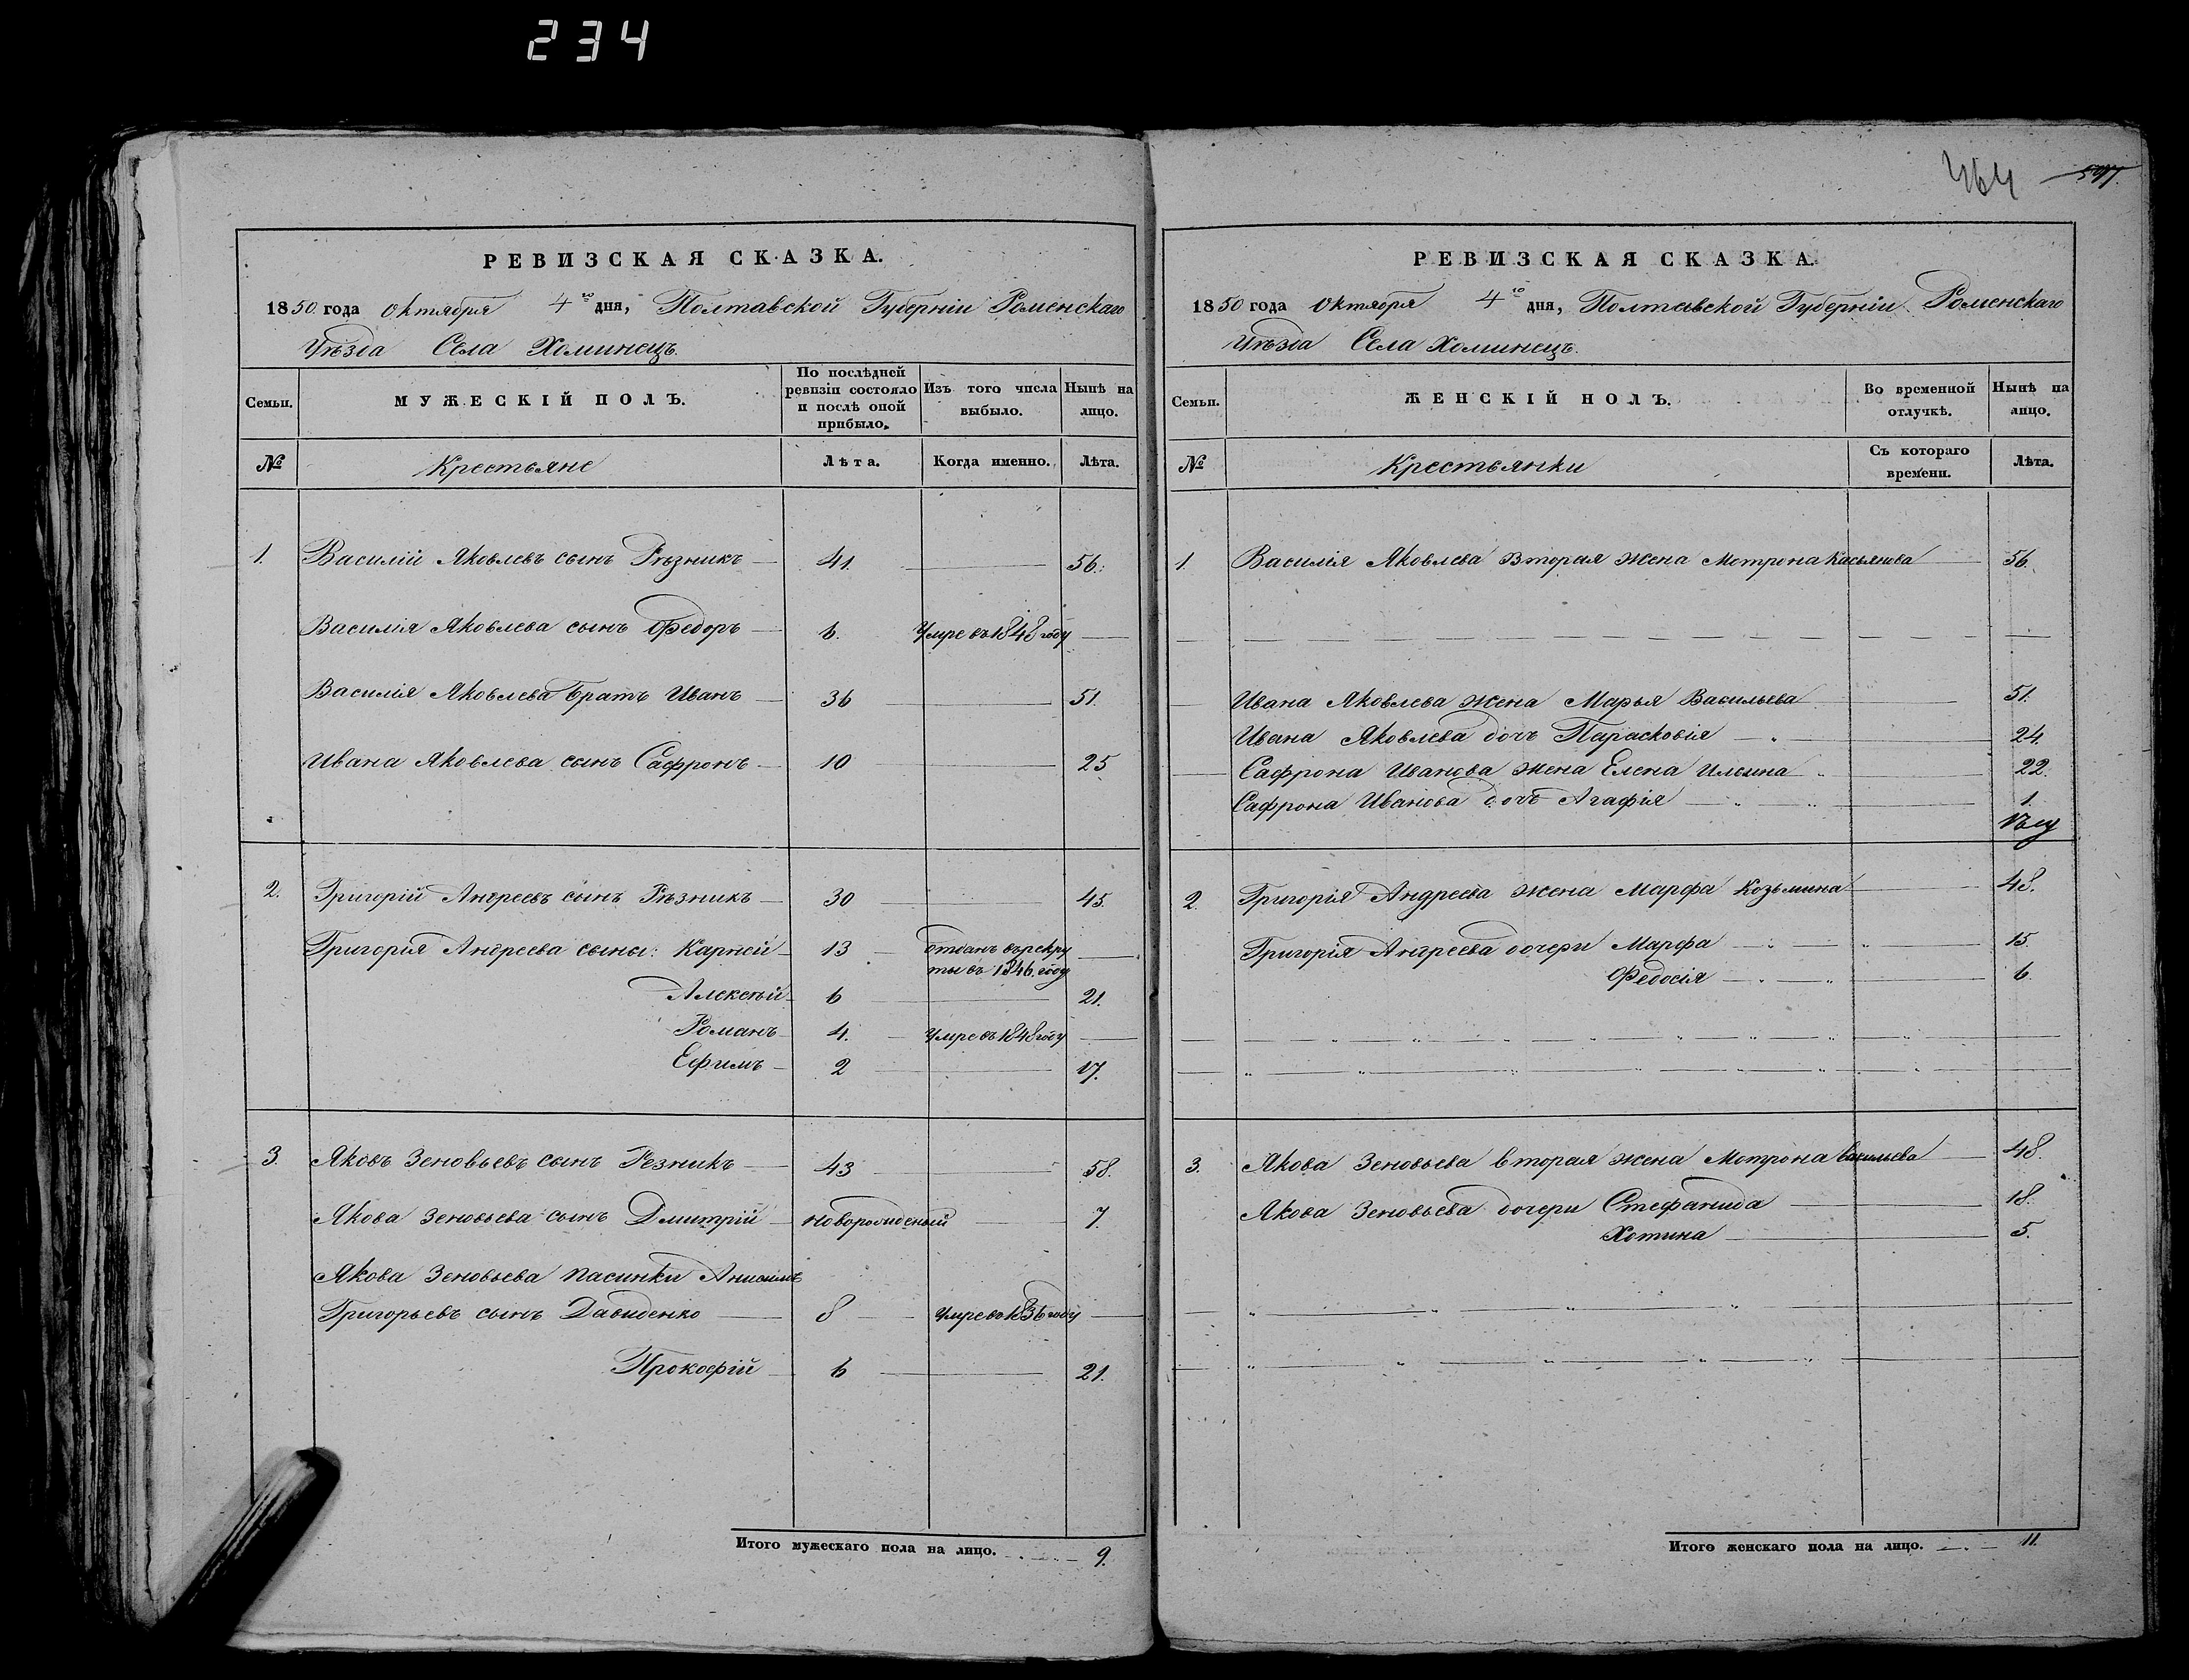 234
464
РЕВИЗСКАЯ СКАЗКА.
1850 года Октября 4го дня, Полтавской Губерніи Роменскаго
Уѣзда Села Хоминецъ.
Семьи. МУЖЕСКІЙ ПОЛЪ. По послѣдней ревизіи состояло и послѣ оной прибыло. Изъ того числа выбыло. Нынѣ на лицо.
№ Крестьяне Лѣта. Когда именно. Лѣта.
1. Василій Яковлевъ сынъ Рѣзникъ — 41. — 56.
Василія Яковлева сынъ Федоръ — 6. Умре въ 1848 году —
Василія Яковлева братъ Иванъ — 36 — 51.
Ивана Яковлева сынъ Сафронъ — 10 — 25
2. Григорій Андреевъ сынъ Рѣзникъ — 30 — 45.
Григорія Андреева сыны: Карней — 13 — отданъ въ рекру
ты въ 1846 году —
Алексѣй — 6 — 21.
Романъ — 4. — Умре въ 1848 году —
Ефимъ — 2 — 17.
3. Яковъ Зеновьевъ сынъ Резникъ — 43 — 58.
Якова Зеновьева сынъ Дмитрій — новорожденый — 7.
Якова Зеновьева пасинки Анисимъ
Григорьевъ сынъ Давиденко — 8 — Умре въ 1836 году —
Прокофій — 6 — 21.
Итого мужескаго пола на лицо. — 9.
РЕВИЗСКАЯ СКАЗКА.
1850 года Октября 4го дня, Полтавской Губерніи Роменскаго
Уѣзда Села Хоминецъ.
Семьи. ЖЕНСКІЙ ПОЛЪ. Во временной отлучкѣ. Нынѣ на лицо.
№ Крестьянки Съ котораго времени. Лѣта.
1. Василія Яковлева вторая жена Мотрона Касьянова — 56.
Ивана Яковлева жена Марья Васильева — 51.
Ивана Яковлева дочь Парасковія — 24.
Сафрона Иванова жена Елена Ильина — 22.
Сафрона Иванова дочь Агафія — 1.
2. Григорія Андреева жена Марфа Козьмина — 48.
Григорія Андреева дочери Марфа — 15.
Федосія — 6.
3. Якова Зеновьева вторая жена Мотрона Васильева — 48.
Якова Зеновьева дочери Стефанида — 18.
Хотина — 5.
Итого женскаго пола на лицо. — 11.